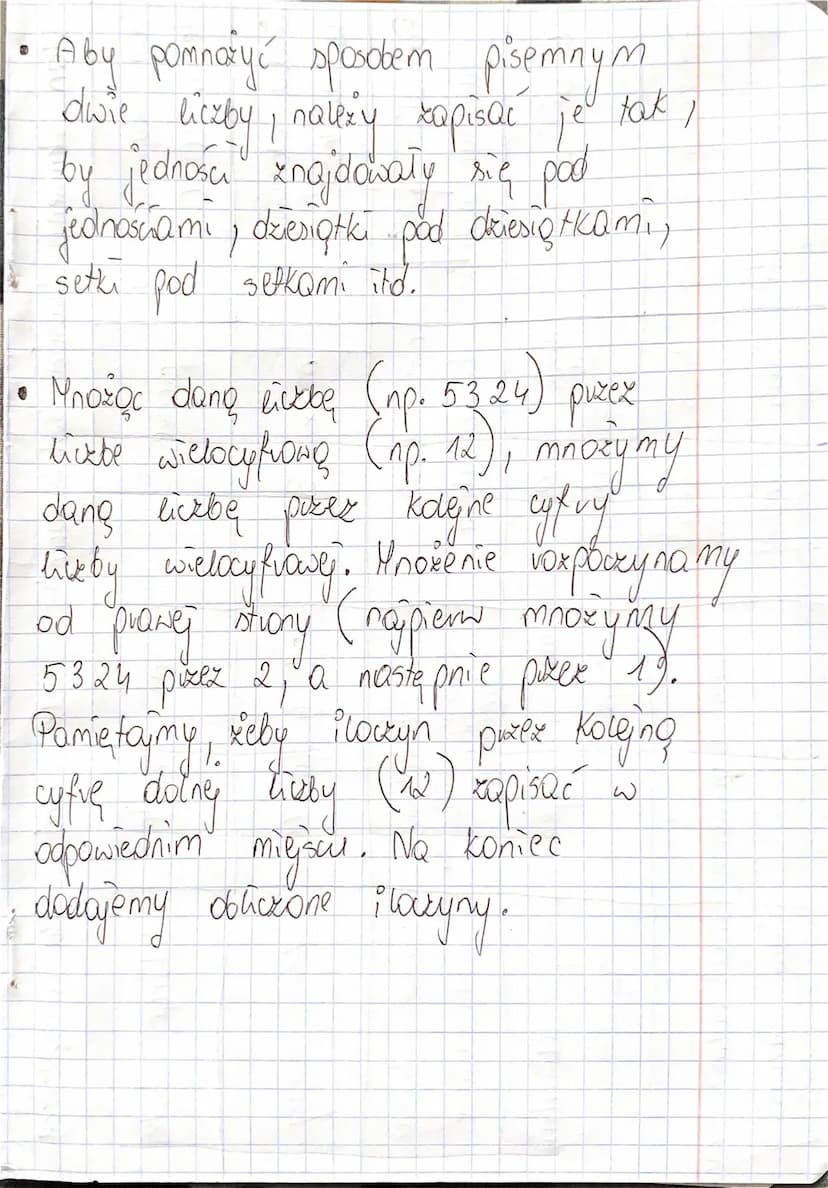 • Aby pomnożyć sposobem pisemnym
dwie liczby, należy zapisać je tak,
by jedności znajdowały się pod
jednościami, dziesiątki pod dziesiątkami,
setki pod setkami itd.
• Mnożąc daną liczbę (np. 5324) przez
liczbe wielocyfrową (np. 12), mnożymy
daną liczbę przez kolejne cyfry
liczby wielocyfrowej. Mnożenie rozpoczynamy
od prawej strony (najpierw mnożymy
5324 przez 2, a następnie przez 1).
Pamiętajmy, żeby iloczyn przez kolejną
cyfrę dolnej liczby (12) zapisać w
odpowiednim miejscu. Na koniec
dodajemy obliczone iloczyny.